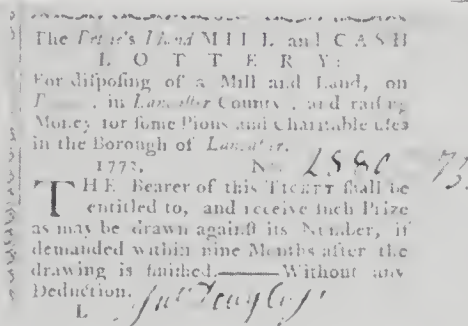 The Pettie's Island MILL and CASH
LOTTERY:
For disposing of a Mill and Land, on
in Lancaster County, and raising
Money for some Pious and Charitable Uses
in the Borough of Lancaster.
1773. No. 2880
THE Bearer of this TICKET shall be
entitled to, and receive such Prize
as may be drawn against its Number, if
demanded within nine Months after the
drawing is finished.——Without any
Deduction.
L